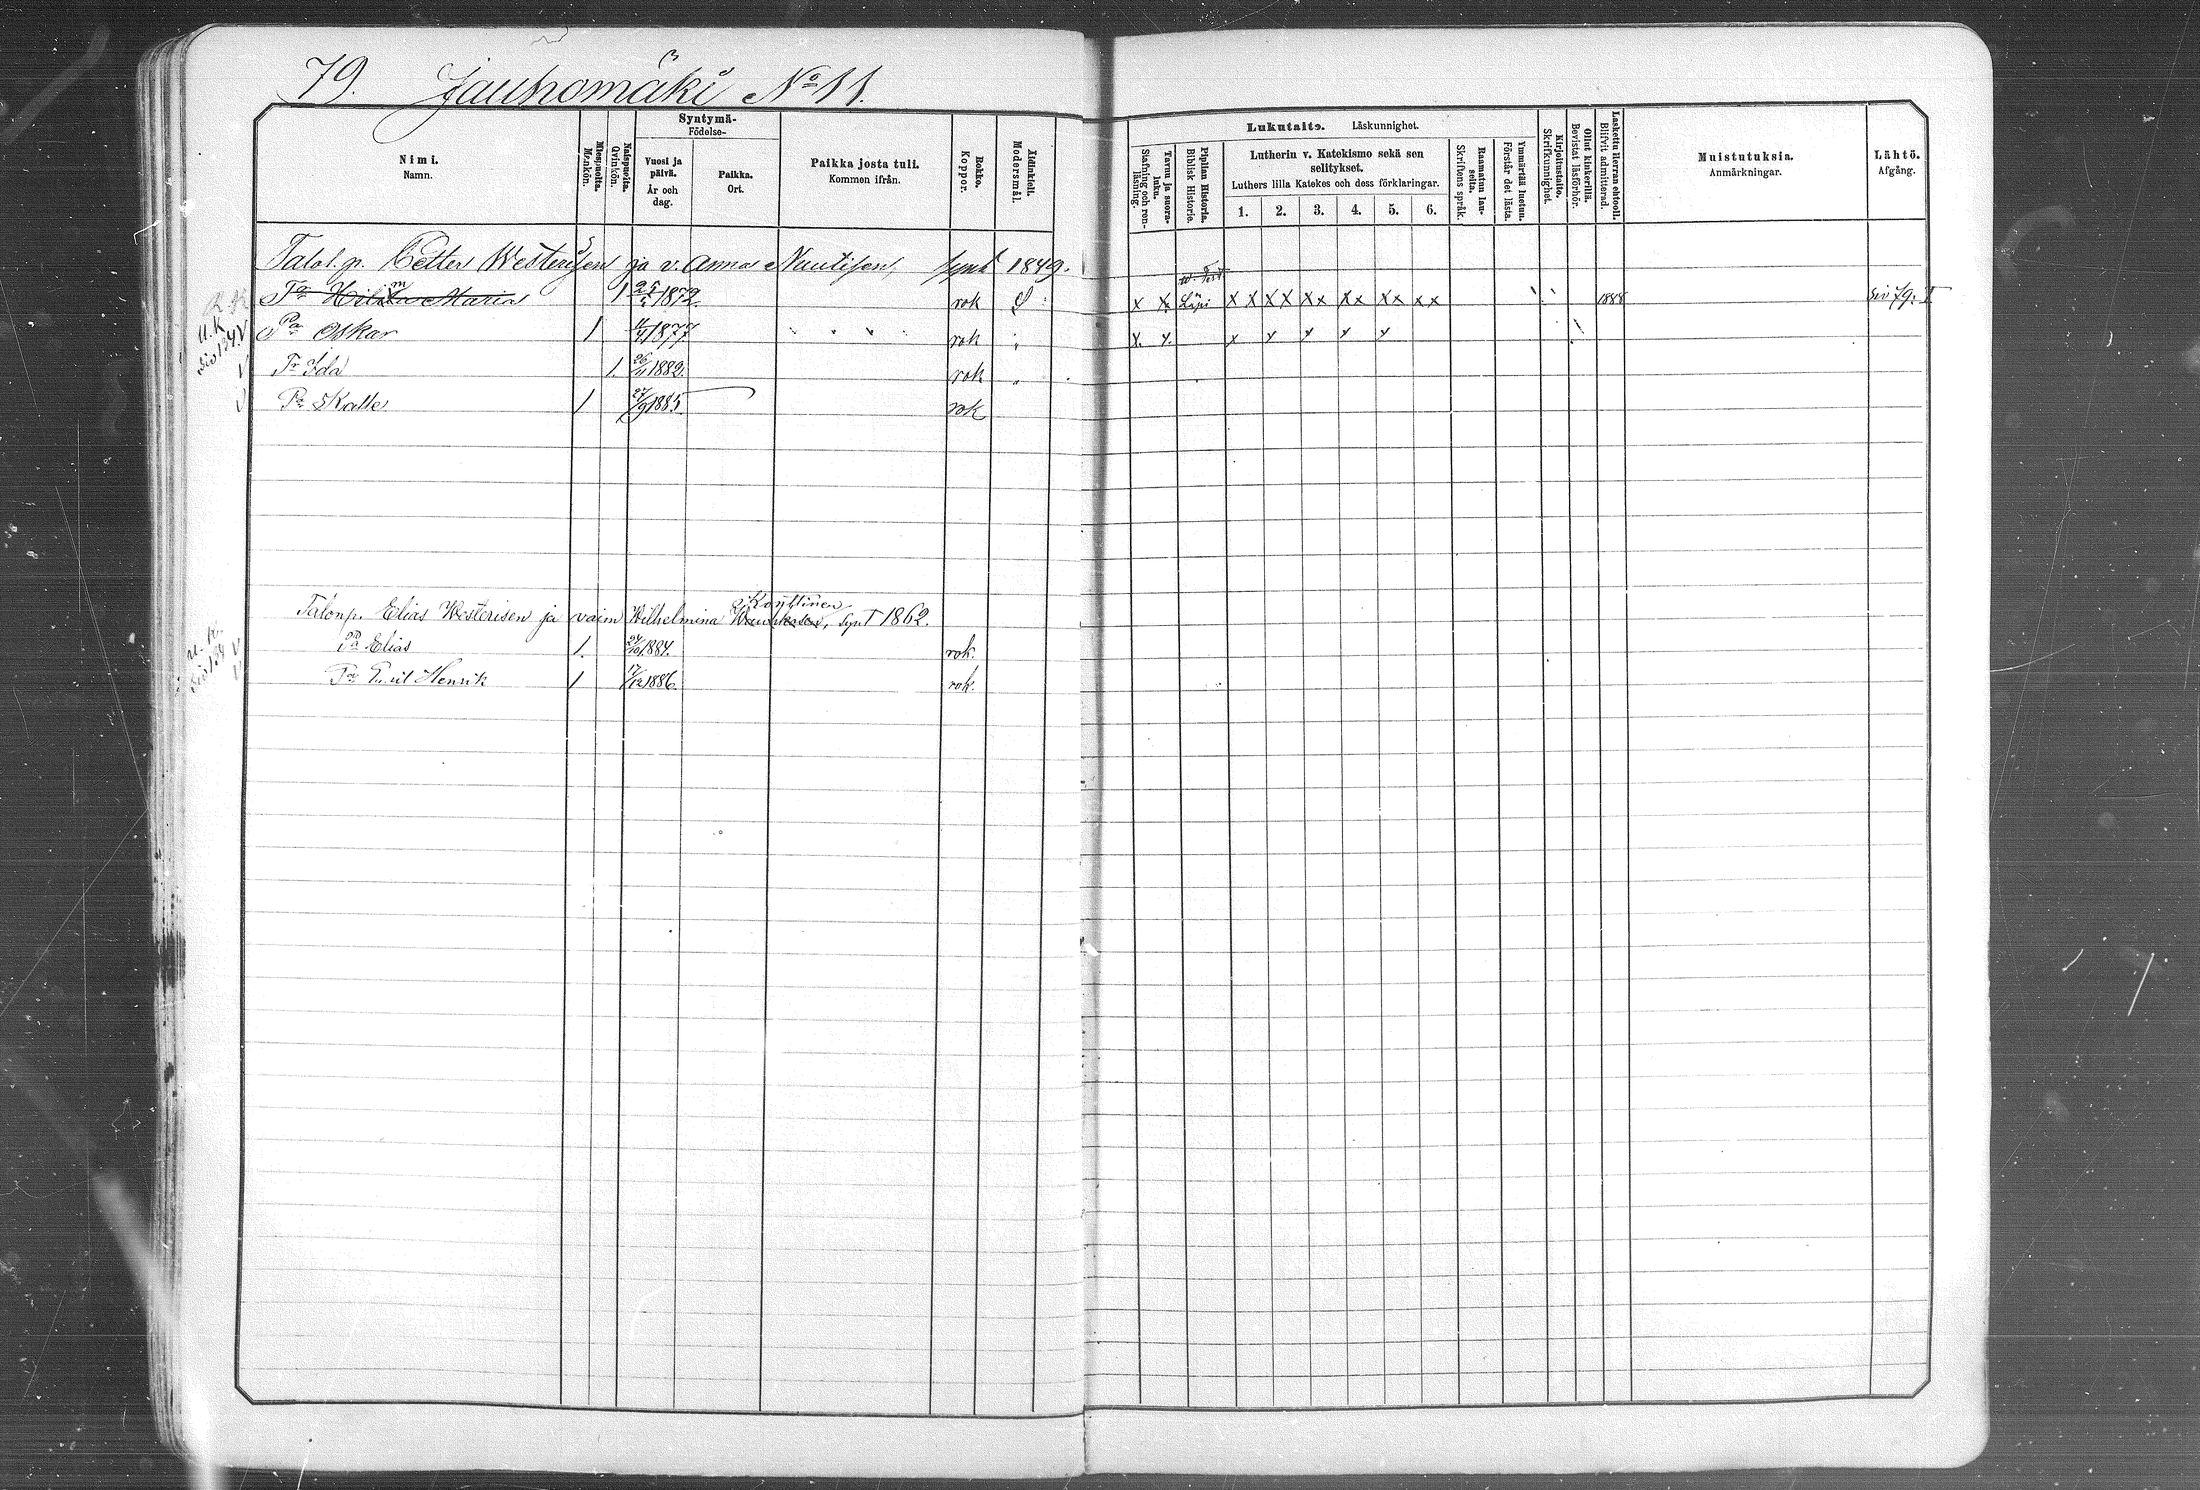 79. Jauhomäki No 11.
Syntymä-
Födelse-
Nimi.
Namn.
Miespuolia.
Mankön.
Naispuolia.
Qvinkön.
Vuosi ja päivä.
År och dag.
Paikka.
Ort.
Paikka josta tuli.
Kommen ifrån.
Rokko.
Koppor.
Äidinkieli.
Modersmål.
Lukutaito. Läskunnighet.
Tavuu ja suoraluku.
Stafning och ronläsning.
Piplian Historia.
Biblisk Historie.
Lutherin v. Katekismo sekä sen
selitykset.
Luthers lilla Katekes och dess förklaringar.
1. 2. 3. 4. 5. 6.
Raamatun lauseita.
Skriftens språk.
Ymmärtää luetun.
Förstår det lästa.
Kirjoitustaito.
Skrifkunnighet.
Ollut kinkerillä.
Bevistat läsförhör.
Laskettu Herran ehtooll.
Blifvit admitterad.
Muistutuksia.
Anmärkningar.
Lähtö.
Afgång.
Talol.p. Petter Westerisen ja v. Anna Nautisen, synt 1849.
Tr Hilma Maria 1 25/1 1872 rok x x Läpi x x x x x x x x x x x x 1888 siv 79. I
Pa Oskar 1 1877 rok x. x. x x x x x
Tr Ida 1. 26/11 1882. rok
Pa Kalle 1 27/9 1885 rok
Talonp. Elias Westerisen ja vaim Wilhelmina Konttinen, synt 1862.
Pa Elias 1. 24/10 1884. rok.
Pa Emil Henrik 1 17/12 1886. rok.